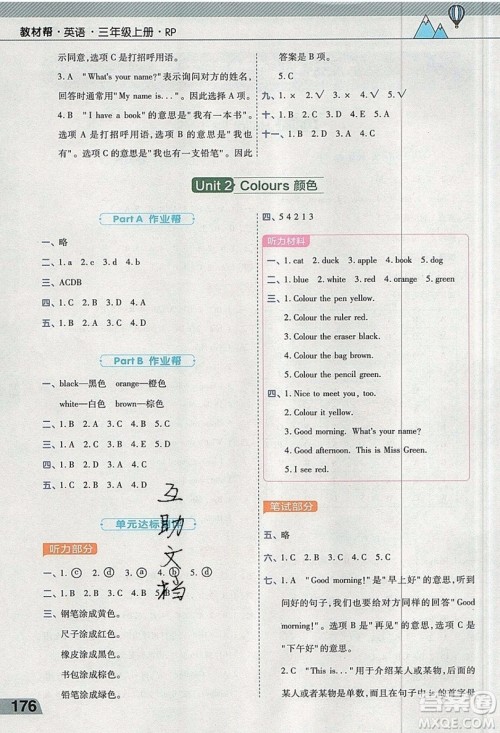 教材帮·英语·三年级上册·RP
示同意，选项 C 是打招呼用语。
3. A "What's your name?"表示询问对方的姓名，
回答时通常用"My name is...."。因此选择 A 项。
4. B "I have a book"的意思是"我有一本书"。
选项 A 是打招呼用语，选项 B 的意思是"我也
有"，选项 C 的意思是"我也有支铅笔"。因此
答案是 B。
5. C
九、1. × 2. √ 3. √ 4. × 5. √
十、1. C 2. B 3. A
十一、1. C 2. B 3. A 4. B
Unit 2 Colours 颜色
Part A 作业帮
一、略
二、1. a 2. c 3. d
三、ACDB
四、1. C 2. B 3. D 4. A
五、1. B 2. A 3. C 4. D
Part B 作业帮
一、black—黑色 orange—橙色
white—白色 brown—棕色
二、1. B 2. A 3. A
三、1. B 2. A 3. C 4. D
四、1. A 2. B 3. B
五、1. B 2. A 3. C 4. D
单元达标
听力部分
一、1. ⓒ 2. ⓓ 3. ⓐ 4. ⓑ 5. ⓓ
三、钢笔涂成黄色。
尺子涂成红色。
橡皮涂成黑色。
铅笔涂成绿色。
四、5 4 2 1 3
听力材料
一、1. cat 2. duck 3. apple 4. book 5. dog
二、1. blue 2. white 3. red 4. orange 5. green
三、1. Colour the pen yellow.
2. Colour the ruler red.
3. Colour the eraser black.
4. Colour the bag brown.
5. Colour the pencil green.
四、1. Nice to meet you, too.
2. I'm Sarah.
3. Good morning. What's your name?
4. Good afternoon. This is Miss Green.
5. I see red.
笔试部分
五、略
六、1. D 2. A 3. B 4. C
七、1. A "Good morning!"是"早上好"的意思，
2. C "This is..."用于介绍某人或某物，因此
某人或某物是单数，且在句子中 is 的首字母
互助文档
176